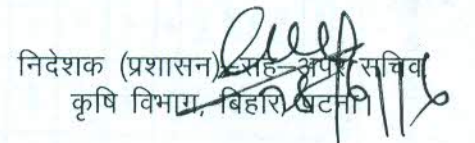 निदेशक (प्रशासन)–सह–अपर सचिव
कृषि विभाग, बिहार, पटना।